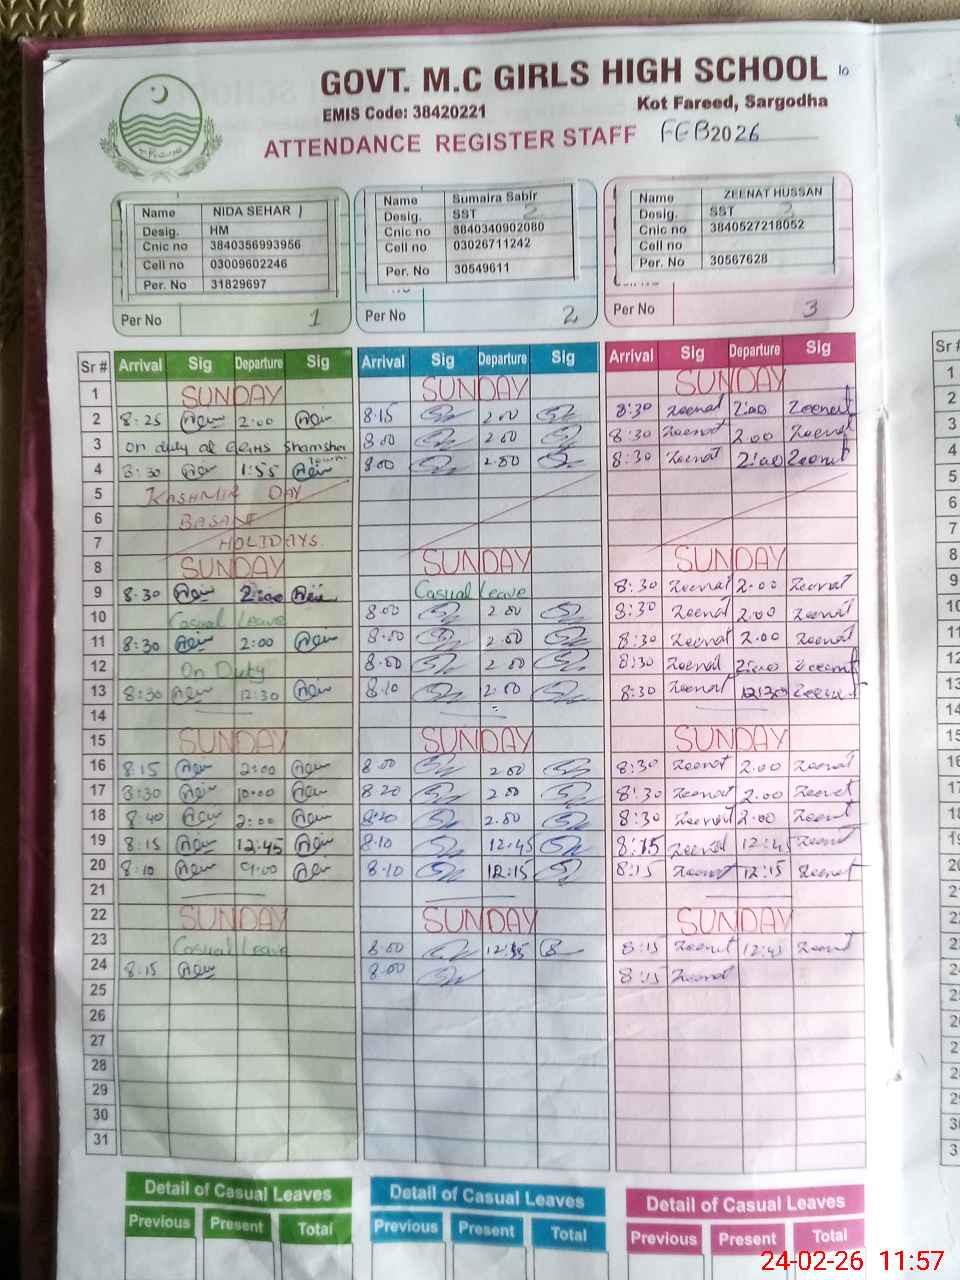 GOVT. M.C GIRLS HIGH SCHOOL 10
EMIS Code: 38420221 Kot Fareed, Sargodha
ATTENDANCE REGISTER STAFF FEB 2026
Name NIDA SEHAR 1
Desig. HM
Cnic no 3840356993956
Cell no 03009602246
Per. No 31829697
Per No 1
Name Sumaira Sabir
Desig. SST 2
Cnic no 3840340902080
Cell no 03026711242
Per. No 30549611
Per No 2
Name ZEENAT HUSSAN
Desig. SST 3
Cnic no 3840527218052
Cell no
Per. No 30567628
Per No 3
Sr # Arrival Sig Departure Sig Arrival Sig Departure Sig Arrival Sig Departure Sig Sr #
1 SUNDAY SUNDAY SUNDAY 1
2 8:25 2:00 8:15 2:00 8:30 Zeenat 2:00 Zeenat 2
3 On duty at GGHS Shamsher Town 8:00 2:00 8:30 Zeenat 2:00 Zeenat 3
4 8:30 1:55 8:00 2:00 8:30 Zeenat 2:00 Zeenat 4
5 KASHMIR DAY 5
6 BASANT 6
7 HOLIDAYS 7
8 SUNDAY SUNDAY SUNDAY 8
9 8:30 2:00 Casual Leave 8:30 Zeenat 2:00 Zeenat 9
10 Casual Leave 8:00 2:00 8:30 Zeenat 2:00 Zeenat 10
11 8:30 2:00 8:00 2:00 8:30 Zeenat 2:00 Zeenat 11
12 On Duty 8:00 2:00 8:30 Zeenat 2:00 Zeenat 12
13 8:30 12:30 8:10 2:00 8:30 Zeenat 12:30 Zeenat 13
14 14
15 SUNDAY SUNDAY SUNDAY 15
16 8:15 2:00 8:00 2:00 8:30 Zeenat 2:00 Zeenat 16
17 8:30 10:00 8:20 2:00 8:30 Zeenat 2:00 Zeenat 17
18 8:40 2:00 8:20 2:00 8:30 Zeenat 2:00 Zeenat 18
19 8:15 12:45 8:10 12:45 8:15 Zeenat 12:45 Zeenat 19
20 8:10 9:00 8:10 12:15 8:15 Zeenat 12:15 Zeenat 20
21 2
22 SUNDAY SUNDAY SUNDAY 2
23 Casual Leave 8:00 12:45 8:15 Zeenat 12:45 Zeenat 2
24 8:15 8:00 8:15 Zeenat 2
25
26
27
28
29
30
31
Detail of Casual Leaves Detail of Casual Leaves Detail of Casual Leaves
Previous Present Total Previous Present Total Previous Present Total
24-02-26 11:57